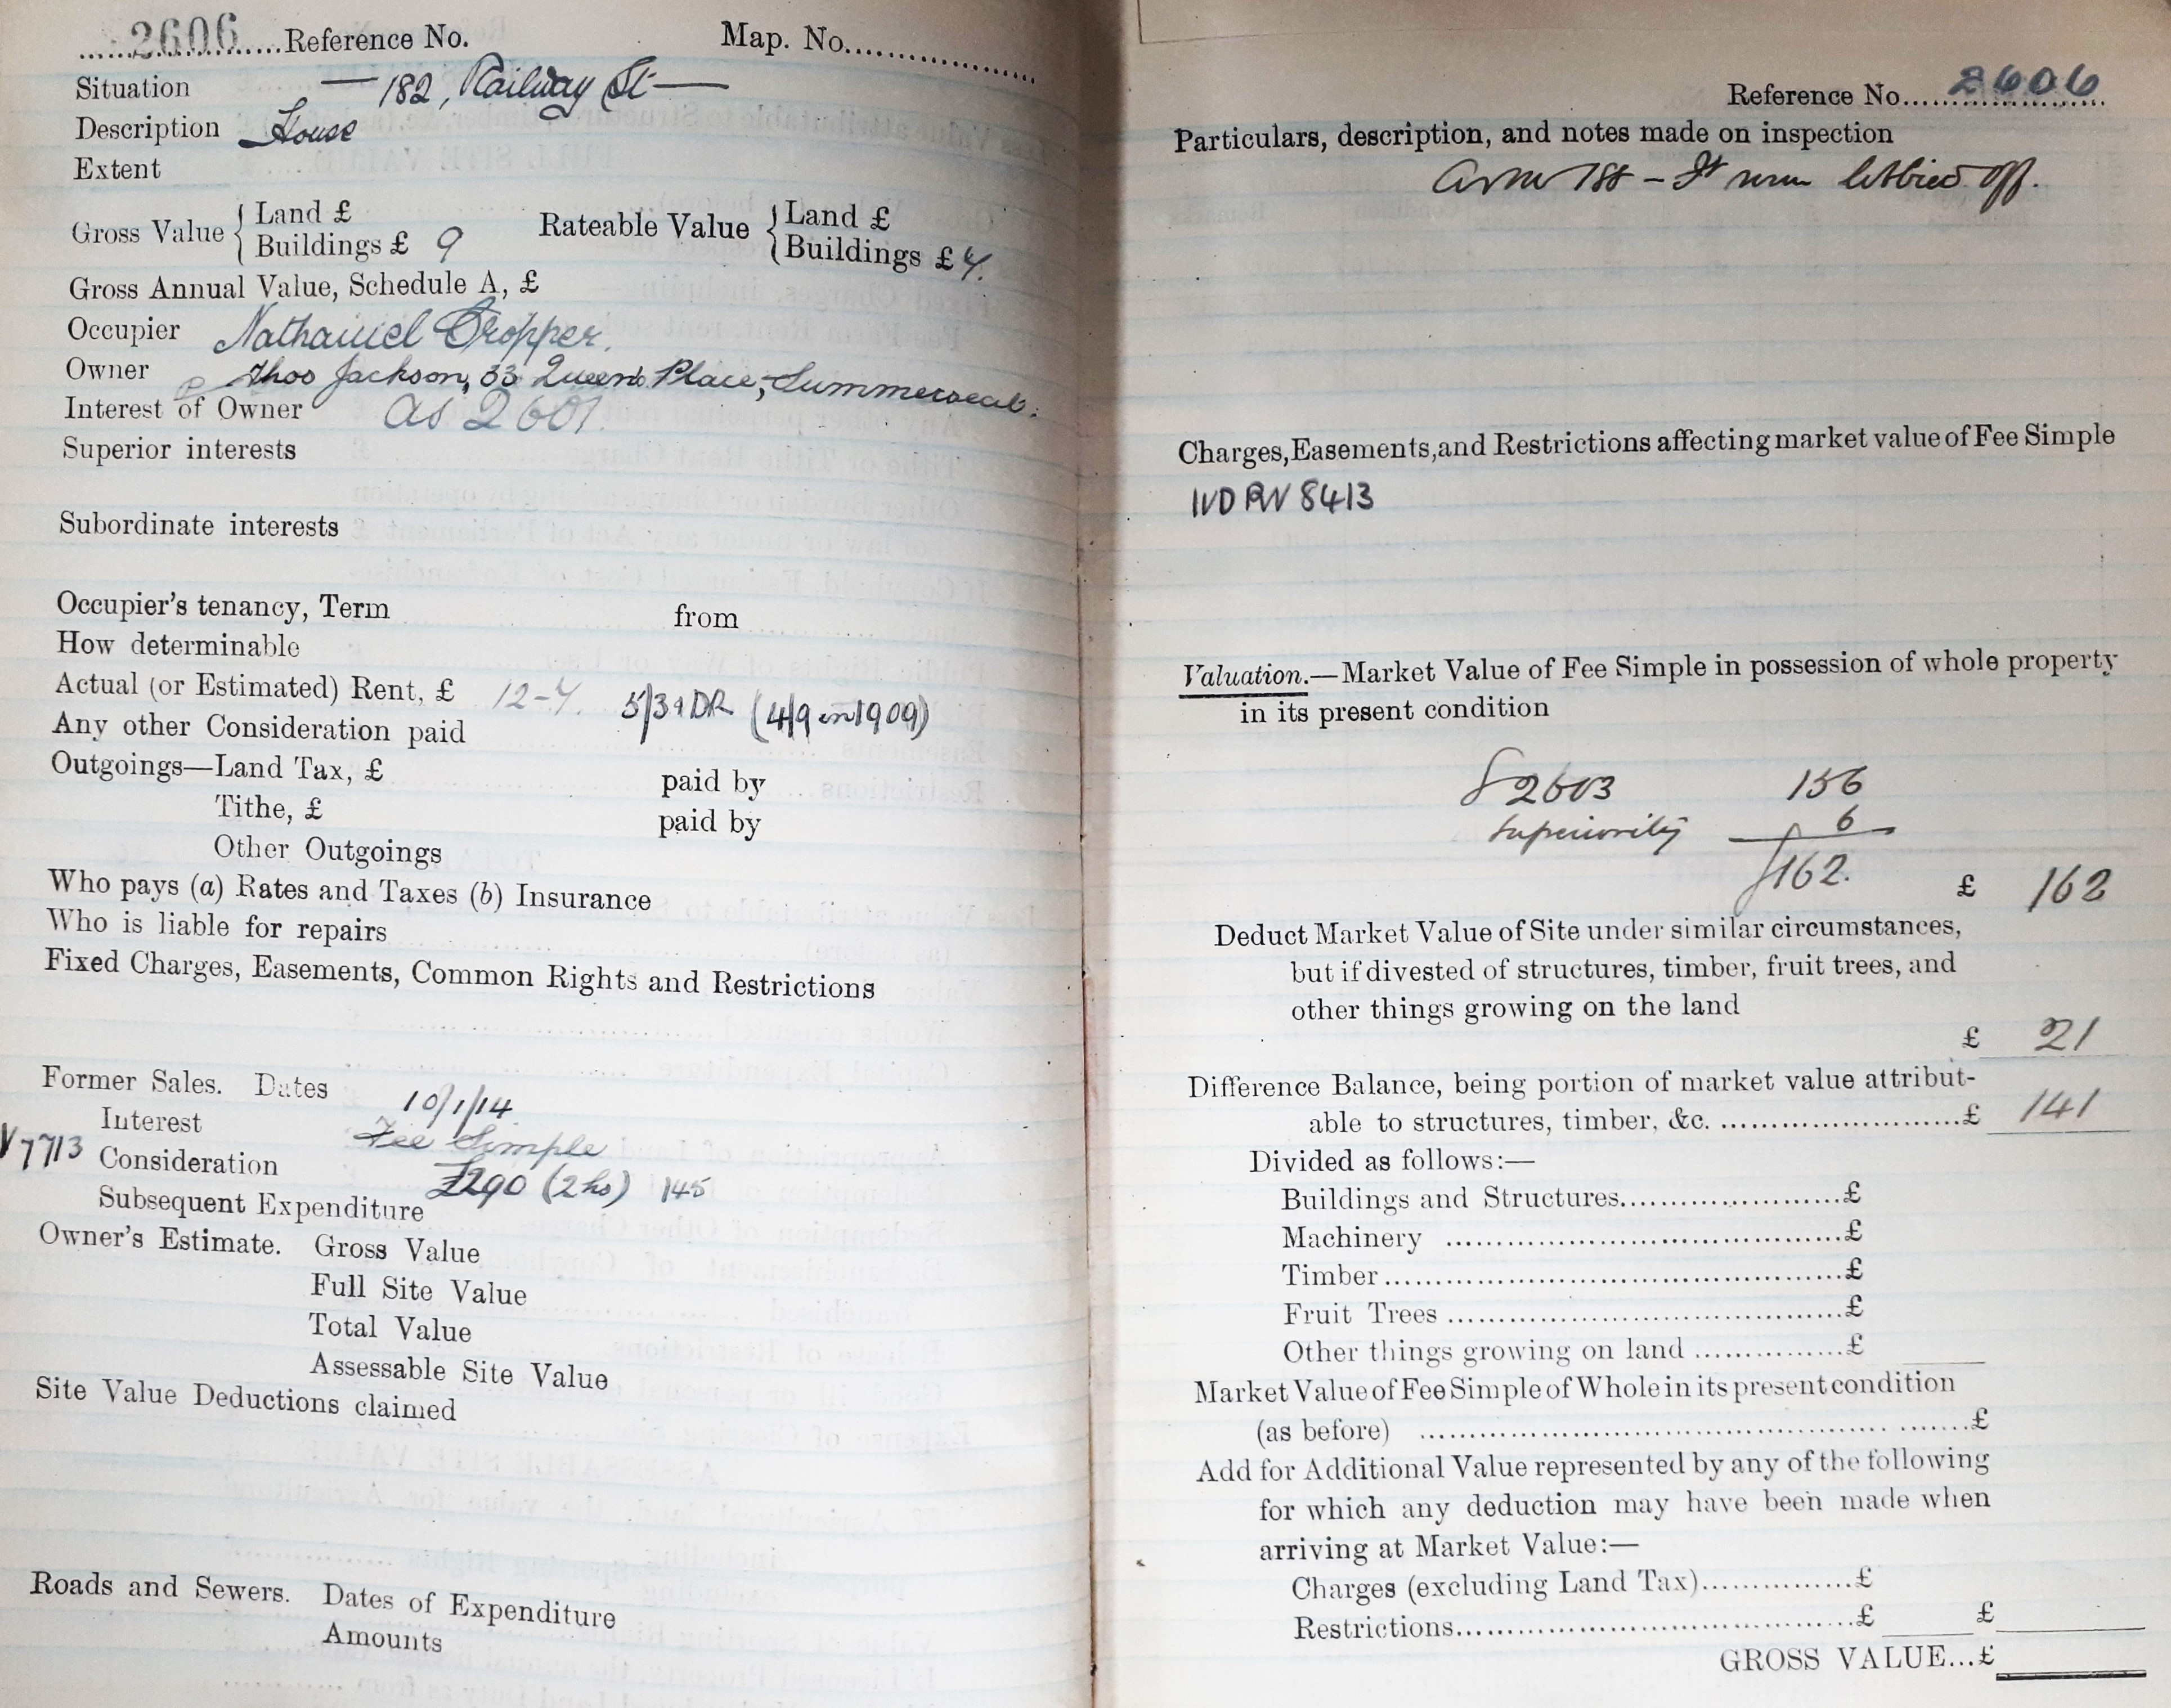 2606 Reference No. Map. No.
Situation — 182, Railway St —
Description House
Extent
Gross Value { Land £
Buildings £ 9
Rateable Value { Land £
Buildings £
Gross Annual Value, Schedule A, £
Occupier Nathaniel Cropper.
Owner Thos Jackson, 33 Queen's Place, Summerseat.
Interest of Owner as 2601.
Superior interests
Subordinate interests
Occupier's tenancy, Term from
How determinable
Actual (or Estimated) Rent, £ 12-4. 5/3 DR (4/9 in 1909)
Any other Consideration paid
Outgoings—Land Tax, £ paid by
Tithe, £ paid by
Other Outgoings
Who pays (a) Rates and Taxes (b) Insurance
Who is liable for repairs
Fixed Charges, Easements, Common Rights and Restrictions
Former Sales. Dates 10/1/14
Interest Fee Simple
V7713 Consideration £290 (2 hs) 145
Subsequent Expenditure
Owner's Estimate. Gross Value
Full Site Value
Total Value
Assessable Site Value
Site Value Deductions claimed
Roads and Sewers. Dates of Expenditure
Amounts
Reference No. 2606
Particulars, description, and notes made on inspection
off.
Charges, Easements, and Restrictions affecting market value of Fee Simple
IVD RV 8413
Valuation.—Market Value of Fee Simple in possession of whole property
in its present condition
2603 156
superiority 6
162.
£ 162
Deduct Market Value of Site under similar circumstances,
but if divested of structures, timber, fruit trees, and
other things growing on the land
£ 21
Difference Balance, being portion of market value attribut-
able to structures, timber, &c. £ 141
Divided as follows:—
Buildings and Structures £
Machinery £
Timber £
Fruit Trees £
Other things growing on land £
Market Value of Fee Simple of Whole in its present condition
(as before) £
Add for Additional Value represented by any of the following
for which any deduction may have been made when
arriving at Market Value:—
Charges (excluding Land Tax) £
Restrictions £ £
GROSS VALUE...£